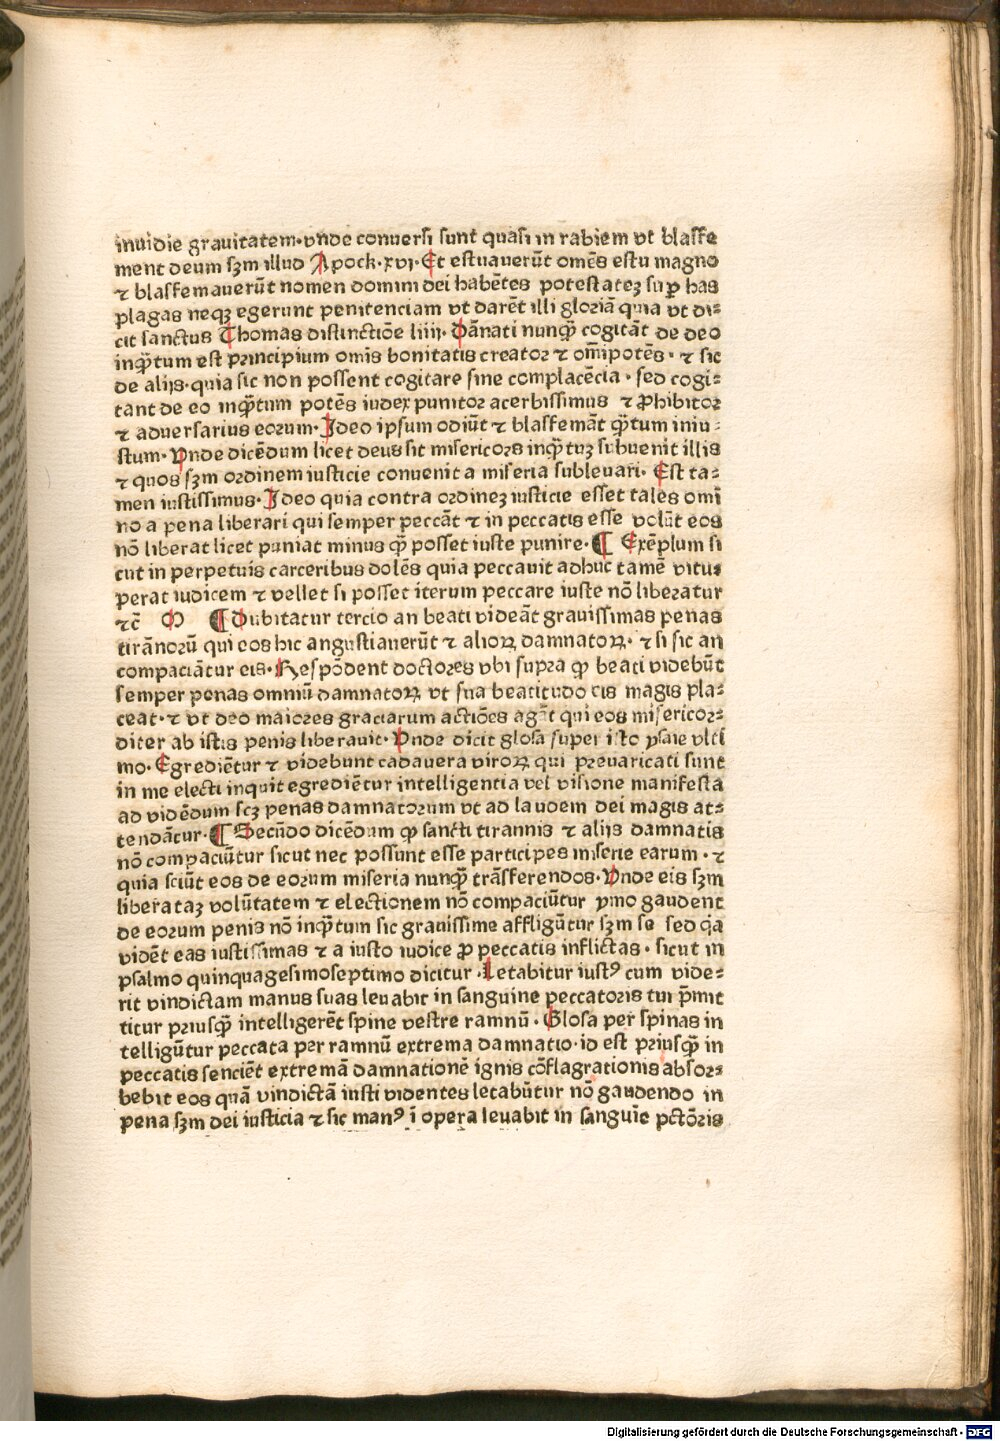 inuidie grauitatem·vnde conuersi sunt quasi in rabiem vt blasfe
ment deum sꝫm illud Apock·xvi·Et estuauerūt omēs estu magno
⁊ blasfemauerūt nomen domini dei habētes potestateꝫ suꝑ has
plagas neqꝫ egerunt penitenciam vt darēt illi gloriā quia vt di⸗
cit sanctus Thomas distinctiōe liiii· Dānati nunꝙ̄ cogitāt de deo
inꝙ̄tum est principium omīs bonitatis creator ⁊ om̄ipotēs· ⁊ sic
de alijs·quia sic non possent cogitare sine complacēcia· sed cogi⸗
tant de eo inꝙ̄tum potēs iudex punitor acerbissimus ⁊ ꝓhibitor
⁊ aduersarius eorum·Ideo ipsum odiūt ⁊ blasfemāt ꝙ̄tum iniu⸗
stum·Vnde dicēdum licet deus sit misericors inꝙ̄tuꝫ subuenit illis
⁊ quos sꝫm ordinem iusticie conuenit a miseria subleuari· Est ta⸗
men iustissimus·Ideo quia contra ordineꝫ iusticie esset tales omī
no a pena liberari qui semper peccāt ⁊ in peccatis esse volūt eos
nō liberat licet puniat minus ꝙ̄ posset iuste punire·¶ Exēplum si
cut in perpetuis carceribus dolēs quia peccauit adhuc tamē vitu⸗
perat iudicem ⁊ vellet si posset iterum peccare iuste nō liberatur
⁊c̄ M ¶Dubitatur tercio an beati videāt grauissimas penas
tirānorū qui eos hic angustiauerūt ⁊ alioꝝ damnatoꝝ· ⁊ si sic an
compaciātur eis·Respōdent doctores vbi supra ꝙ beati videbūt
semper penas omniū damnatoꝝ vt sua beatitudo eis magis pla⸗
ceat·⁊ vt deo maiores graciarum actiōes agāt qui eos misericor⸗
diter ab istis penis liberauit·Vnde dicit glosa super isto ysaie vlti
mo·Egredientur ⁊ videbunt cadauera viroꝝ qui preuaricati sunt
in me electi inquit egrediētur intelligentia vel visione manifesta
ad vidēdum scꝫ penas damnatorum vt ad laudem dei magis at⸗
tendātur·¶Secūdo dicēdum ꝙ sancti tirannis ⁊ alijs damnatis
nō compaciūtur sicut nec possunt esse participes miserie earum·⁊
quia sciūt eos de eorum miseria nunꝙ̄ trāsferendos·Vnde eis sꝫm
liberataꝫ volūtatem ⁊ electionem nō compaciūtur ymo gaudent
de eorum penis nō inꝙ̄tum sic grauissime affligūtur sꝫm se sed qa
vidēt eas iustissimas ⁊ a iusto iudice ꝓ peccatis inflictas· sicut in
psalmo quinquagesimoseptimo dicitur·Letabitur iustꝰ cum vide⸗
rit vindictam manus suas leuabit in sanguine peccatoris tui p̄mit
titur priusꝙ̄ intelligerēt spine vestre ramnū· Glosa per spinas in
telligūtur peccata per ramnū extrema damnatio·id est priusꝙ̄ in
peccatis senciēt extremā damnationē ignis cōflagrationis absor⸗
bebit eos quā vindictā iusti videntes letabūtur nō gaudendo in
pena sꝫm dei iusticia ⁊ sic manꝰ ī opera leuabit in sanguīe pctōris
Digitalisierung gefördert durch die Deutsche Forschungsgemeinschaft - DFG